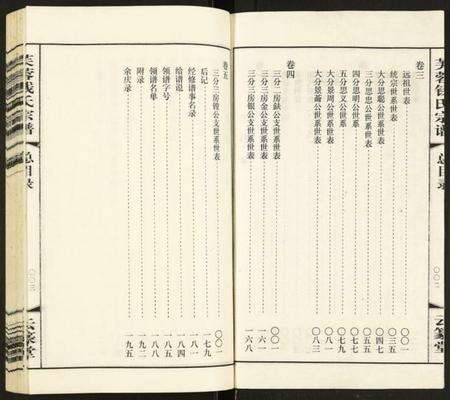 芙蓉钱氏宗谱
总目录
云篆堂
卷三
远祖世表 〇〇一
统宗世系世表
大分思聪公世系世表
三分思忠公世系世表
四分思明公世系
五分思义公世系 〇七九
大分景周公世系世表 〇八一
大分景斋公世系世表 〇八三
卷四
三分三房献公支世系世表 〇〇一
三分三房金公支世系世表 一六一
三分三房银公支世系世表 一六八
卷五
三分三房公支世系世表 〇〇一
后记 一七九
经修谱事名录 一八一
给谱说 一八四
领谱字号 一八五
领谱名单 一八八
附录 一九二
余庆录 一九五
芙蓉钱氏宗谱
总目录
〇〇三
云篆堂